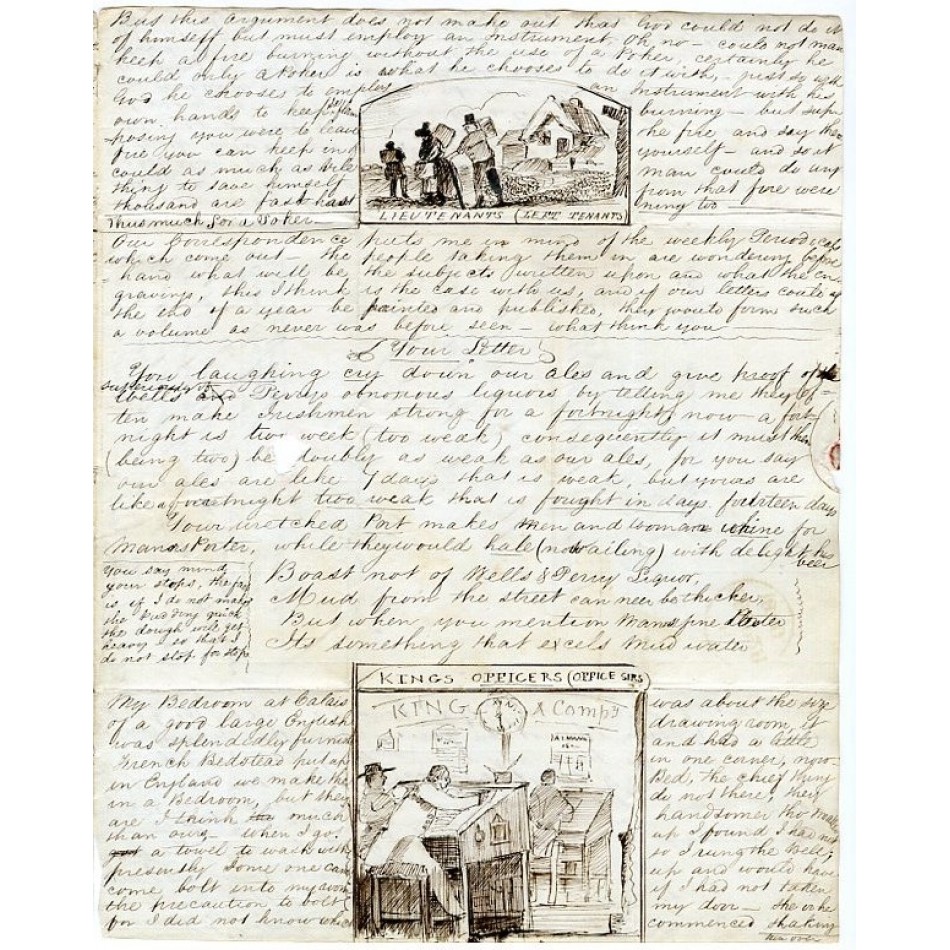 But this argument does not make out that God could not do it
of himself but must employ an instrument, Oh no - could not man
keep a fire burning without the use of a Poker, certainly he
could only a Poker is what he chooses to do it with, - just so with
God he chooses to employ an Instrument with his
own hands to keep burning - but sup
posing you were to leave the fire and say the
fire you can keep in yourself - and so it
could as much as man could do any
thing to save himself from that fire were
thousand are fast ning to
Thus much for a Poker
LIEUTENANTS (LEFT TENANTS)
Our Correspondence puts me in mind of the weekly Periodicals
which come out - the people taking them in are wondering before
hand what will be the subjects written upon and what the en
gravings, this I think is the case with us, and if our letters could at
the end of a year be printed and published, they would form such
a volume as never was before seen - what think you
Your Letter
You laughing cry down our ales and give proof of the
superiority of
Wells and Perrys obnoxious liquors by telling me they of
ten make Irishmen strong for a fortnight, now a fort
night is two week (too weak) consequently it must then
(being two) be doubly as weak as our ales, for you say
our ales are like 7 days that is weak, but yours are
like a fortnight two weak that is fought in days fourteen days
Your wretched Port makes men and woman whine for
Manns Porter, while they would hale (not ailing) with delight his
beer
You say mind
your stops, the fact
is, if I do not make
the Pudding quick
the dough will get
heavy, so that I
do not stop for stops
Boast not of Wells & Perry Liquor,
Mud from the street can neer be thicker,
But when you mention Manns fine Porter
Its something that excels Mud water
KINGS OFFICERS (OFFICE SIRS)
KING & Compy
My Bedroom at Calais was about the size
of a good large English drawing room, it
was splendedly furnis and had a little
French Bedstead put up in one corner, now
in England we make the Bed, the chief thing
in a Bedroom, but they do not there, they
are I think much handsomer tho
than ours - when I got up I found I had not
a towel to wash with so I rung the Bell,
presently some one came up and would have
come bolt into my room if I had not taken
the precaution to bolt my door - she or he
for I did not know which commenced shaking
turn over